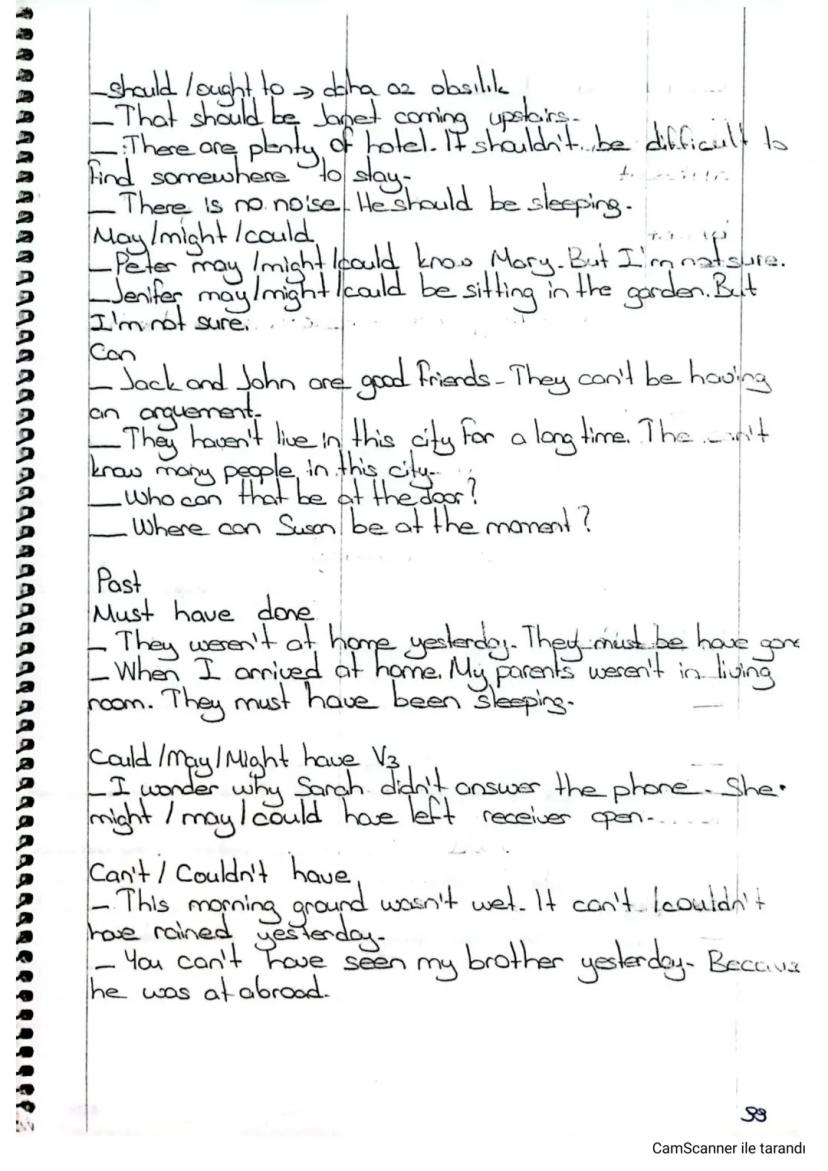 _should / ought to → daha az obsilik
_ That should be Janet coming upstairs.
_ There are plenty of hotel. It shouldn't be difficult to
find somewhere to stay.
_ There is no noise. He should be sleeping.
May / might / could
_ Peter may / might / could know Mary. But I'm not sure.
_ Jenifer may / might / could be sitting in the garden. But
I'm not sure.
Can
_ Jack and John are good friends. They can't be having
an arguement.
_ They haven't live in this city for a long time. The
know many people in this city.
_ Who can that be at the door?
_ Where can Susan be at the moment?
Past
Must have done
_ They weren't at home yesterday. They must be have gone
_ When I arrived at home. My parents weren't in living
room. They must have been sleeping.
Could / May / Might have V3
_ I wonder why Sarah didn't answer the phone. She
might / may / could have left receiver open.
Can't / Couldn't have
_ This morning ground wasn't wet. It can't / couldn't
have rained yesterday.
_ You can't have seen my brother yesterday. Because
he was at abroad.
CamScanner ile tarandı